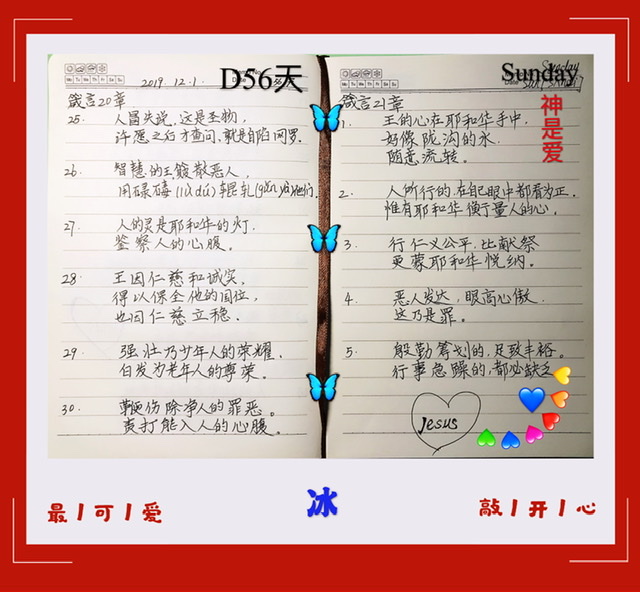 D56天
2019.12.1.
箴言20章
25. 人冒失说,这是圣物,
许愿之后才查问,就是自陷网罗.
26. 智慧的王簸散恶人,
用碌碡(liù dú)辊轧(gǔn yà)他们.
27. 人的灵是耶和华的灯,
鉴察人的心腹。
28. 王因仁慈和诚实,
得以保全他的国位,
也因仁慈立稳.
29. 强壮乃少年人的荣耀,
白发为老年人的尊荣。
30. 鞭伤除净人的罪恶。
责打能入人的心腹。
Sunday
箴言21章
神是爱
1. 王的心在耶和华手中,
好像陇沟的水,
随意流转。
2. 人所行的,在自己眼中都看为正,
惟有耶和华衡量人的心.
3. 行仁义公平,比献祭
更蒙耶和华悦纳。
4. 恶人发达,眼高心傲.
这乃是罪。
5. 殷勤筹划的,足致丰裕。
行事急躁的,都必缺乏
Jesus
最|可|爱
冰
敲|开|心